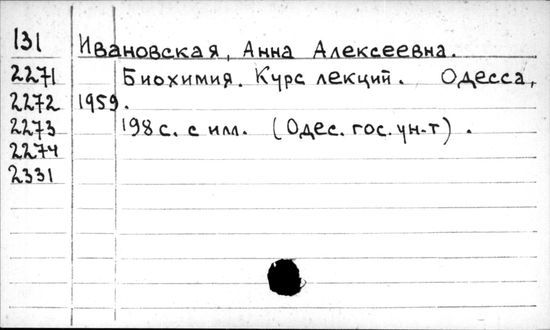 131 Ивановская, Анна Алексеевна.
2271 Биохимия. Курс лекций. Одесса,
2272 1959.
2273 198 с. с илл. (Одес. гос. ун-т).
2274
2331